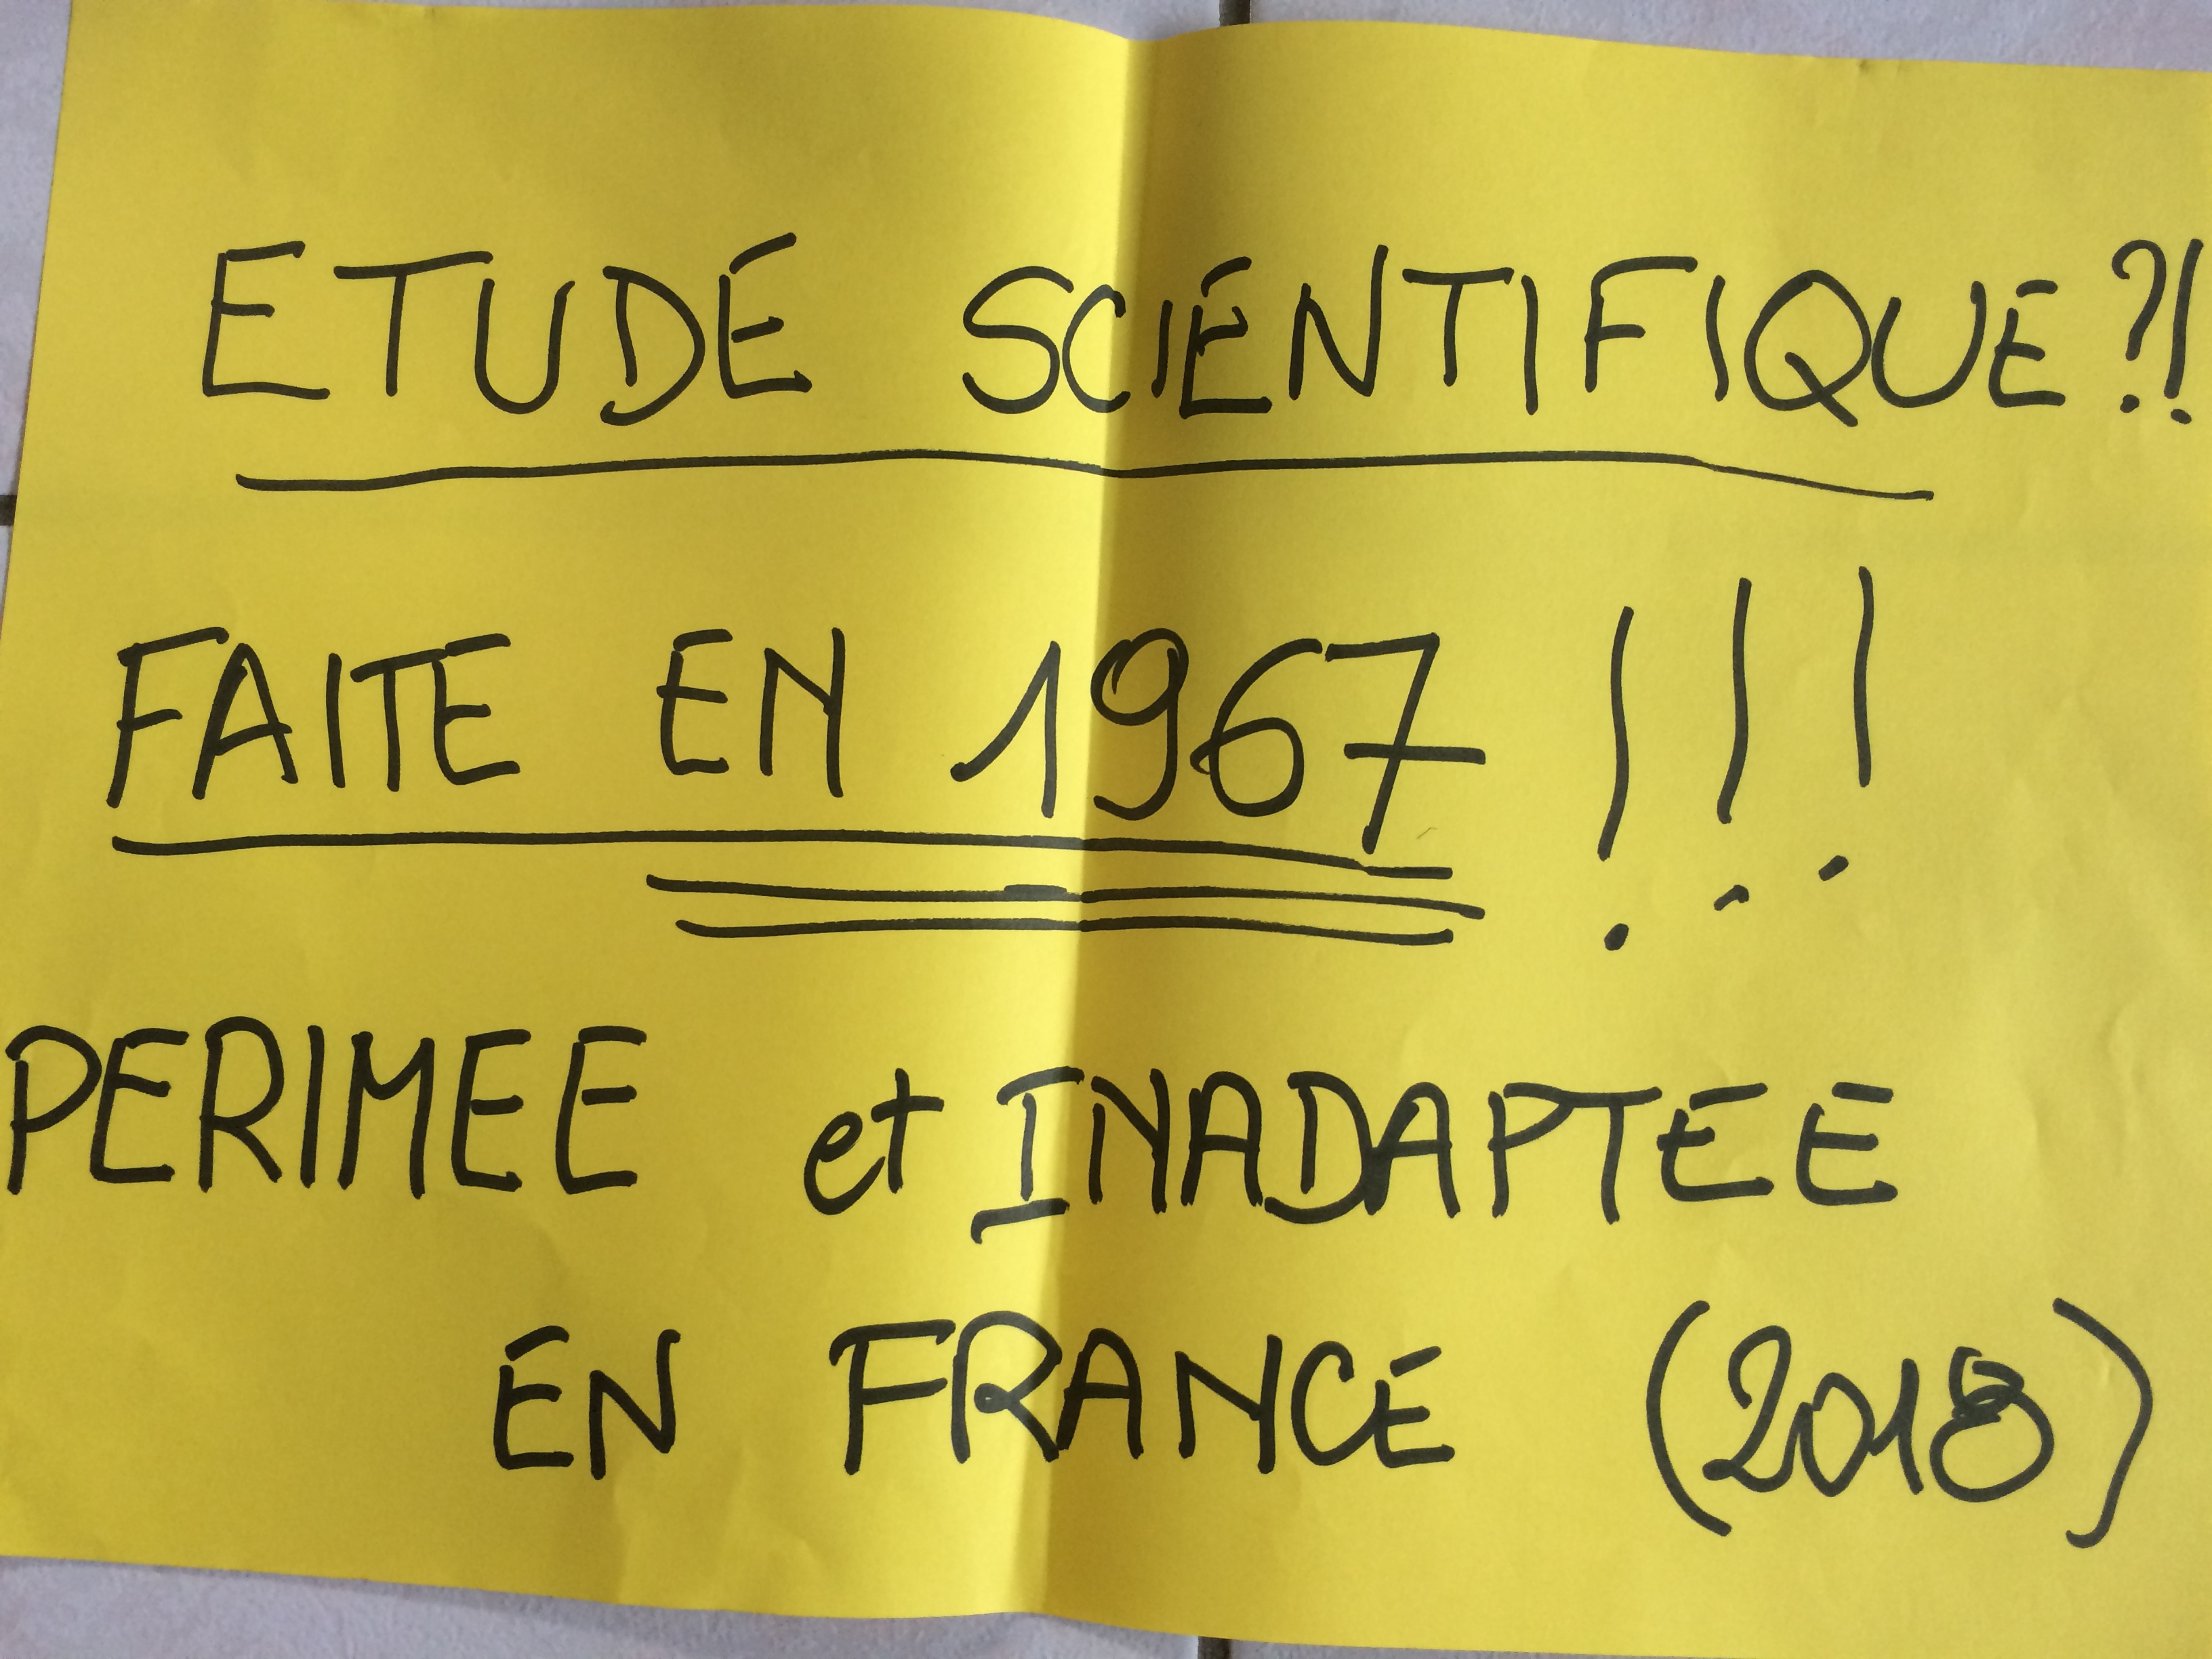 ETUDE SCIENTIFIQUE ?!
FAITE EN 1967 !!!
PERIMEE et INADAPTEE
EN FRANCE (2018)